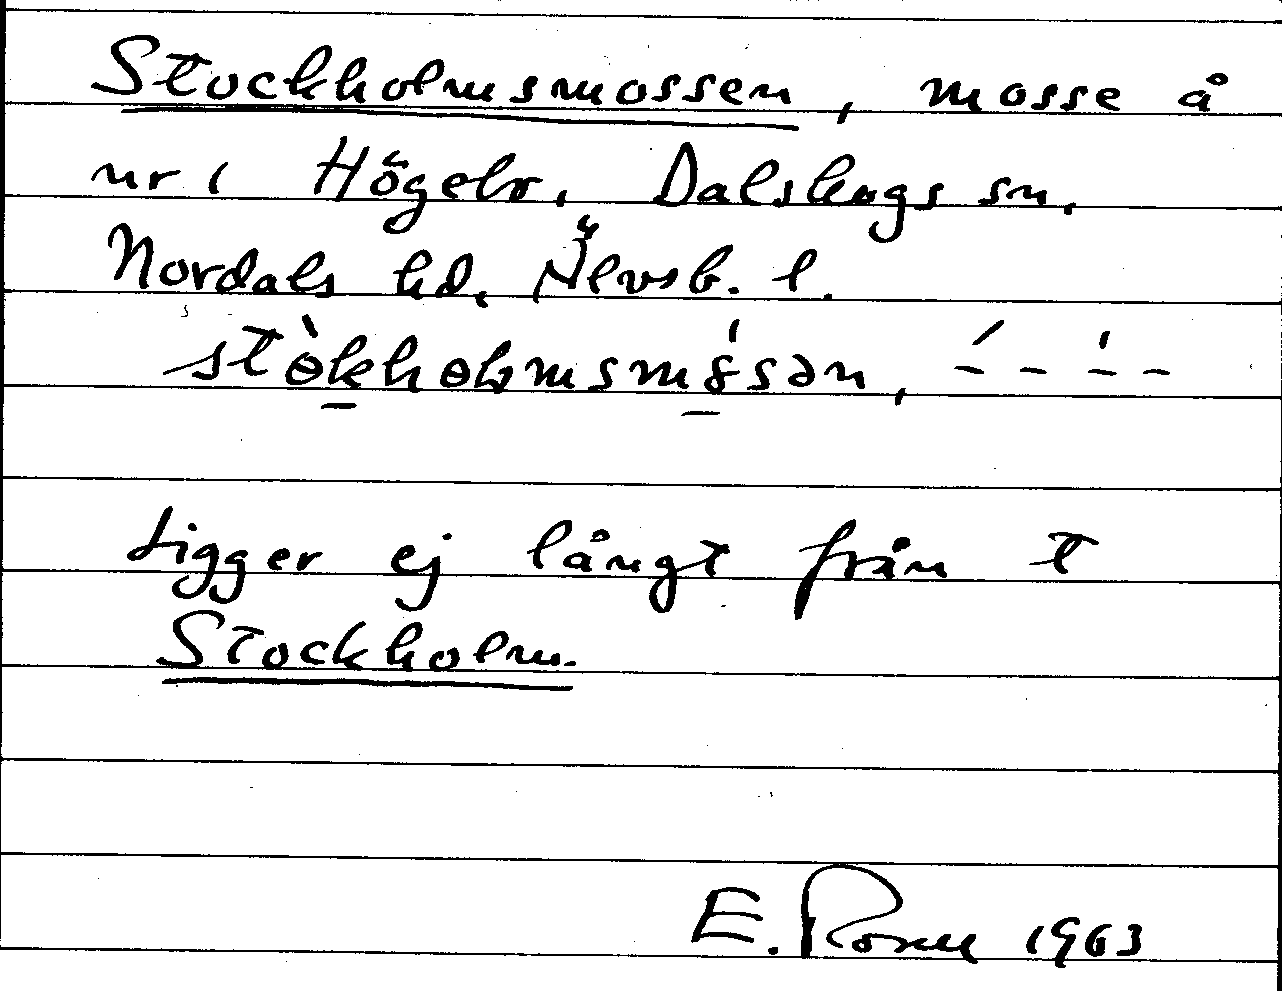 Stockholmsmossen, mosse å
nr 1 Högelv. Dalskogs sn.
Nordals hd. Älvsb. l.
stòkholmsmósən, – – – –
Ligger ej långt från t
Stockholm.
E. 1963